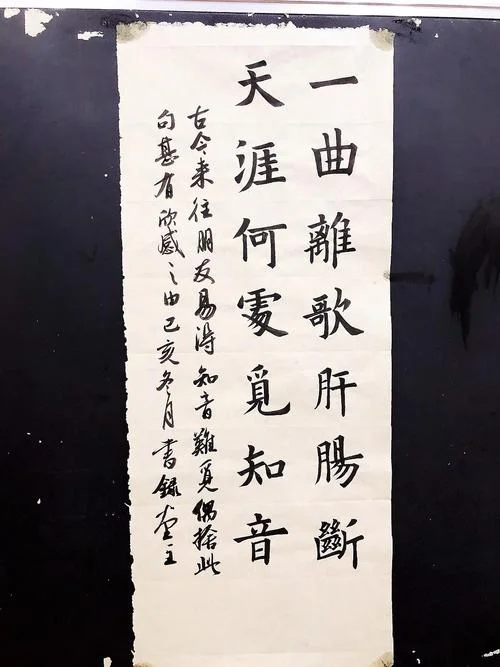 一曲離歌肝腸斷
天涯何處覓知音
古今来往朋友易得知音難覓偶拾此
句甚有欣感之由己亥冬月書録堂主